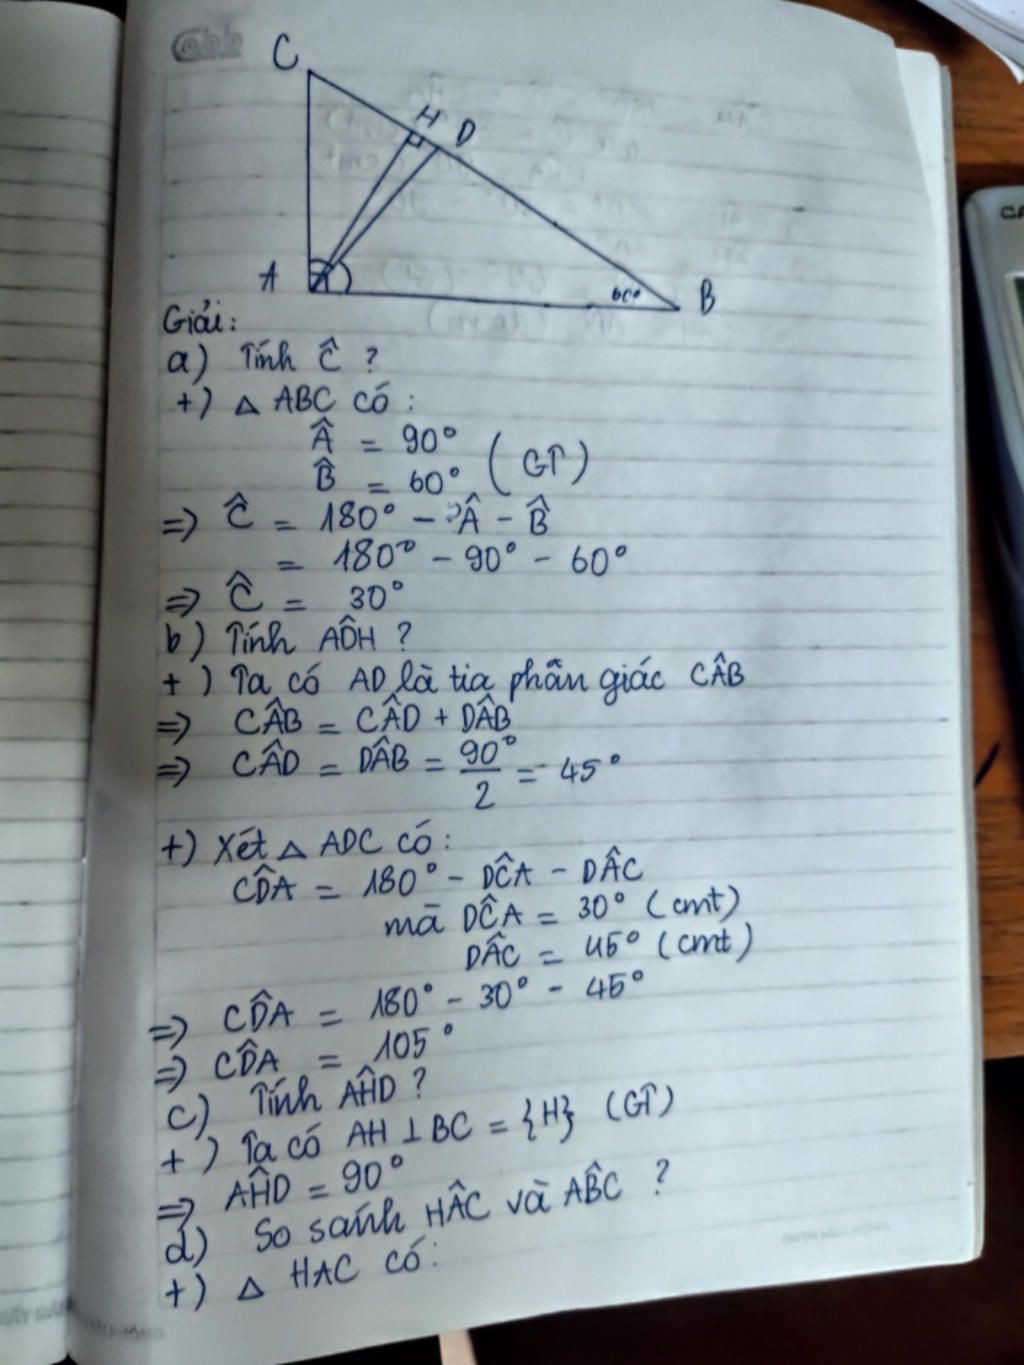 C
H
D
A
60°
B
Giải:
a) Tính Ĉ ?
+) △ ABC có :
Â = 90°
B̂ = 60° ( GT )
=> Ĉ = 180° - Â - B̂
= 180° - 90° - 60°
=> Ĉ = 30°
b) Tính AD̂H ?
+) Ta có AD là tia phân giác CÂB
=> CÂB = CÂD + DÂB
=> CÂD = DÂB = 90°/2 = 45°
+) Xét △ ADC có :
CD̂A = 180° - DĈA - DÂC
mà DĈA = 30° (cmt)
DÂC = 45° (cmt)
=> CD̂A = 180° - 30° - 45°
=> CD̂A = 105°
c) Tính AĤD ?
+) Ta có AH ⊥ BC = {H} (GT)
=> AĤD = 90°
d) So sánh HÂC và AB̂C ?
+) △ HAC có :